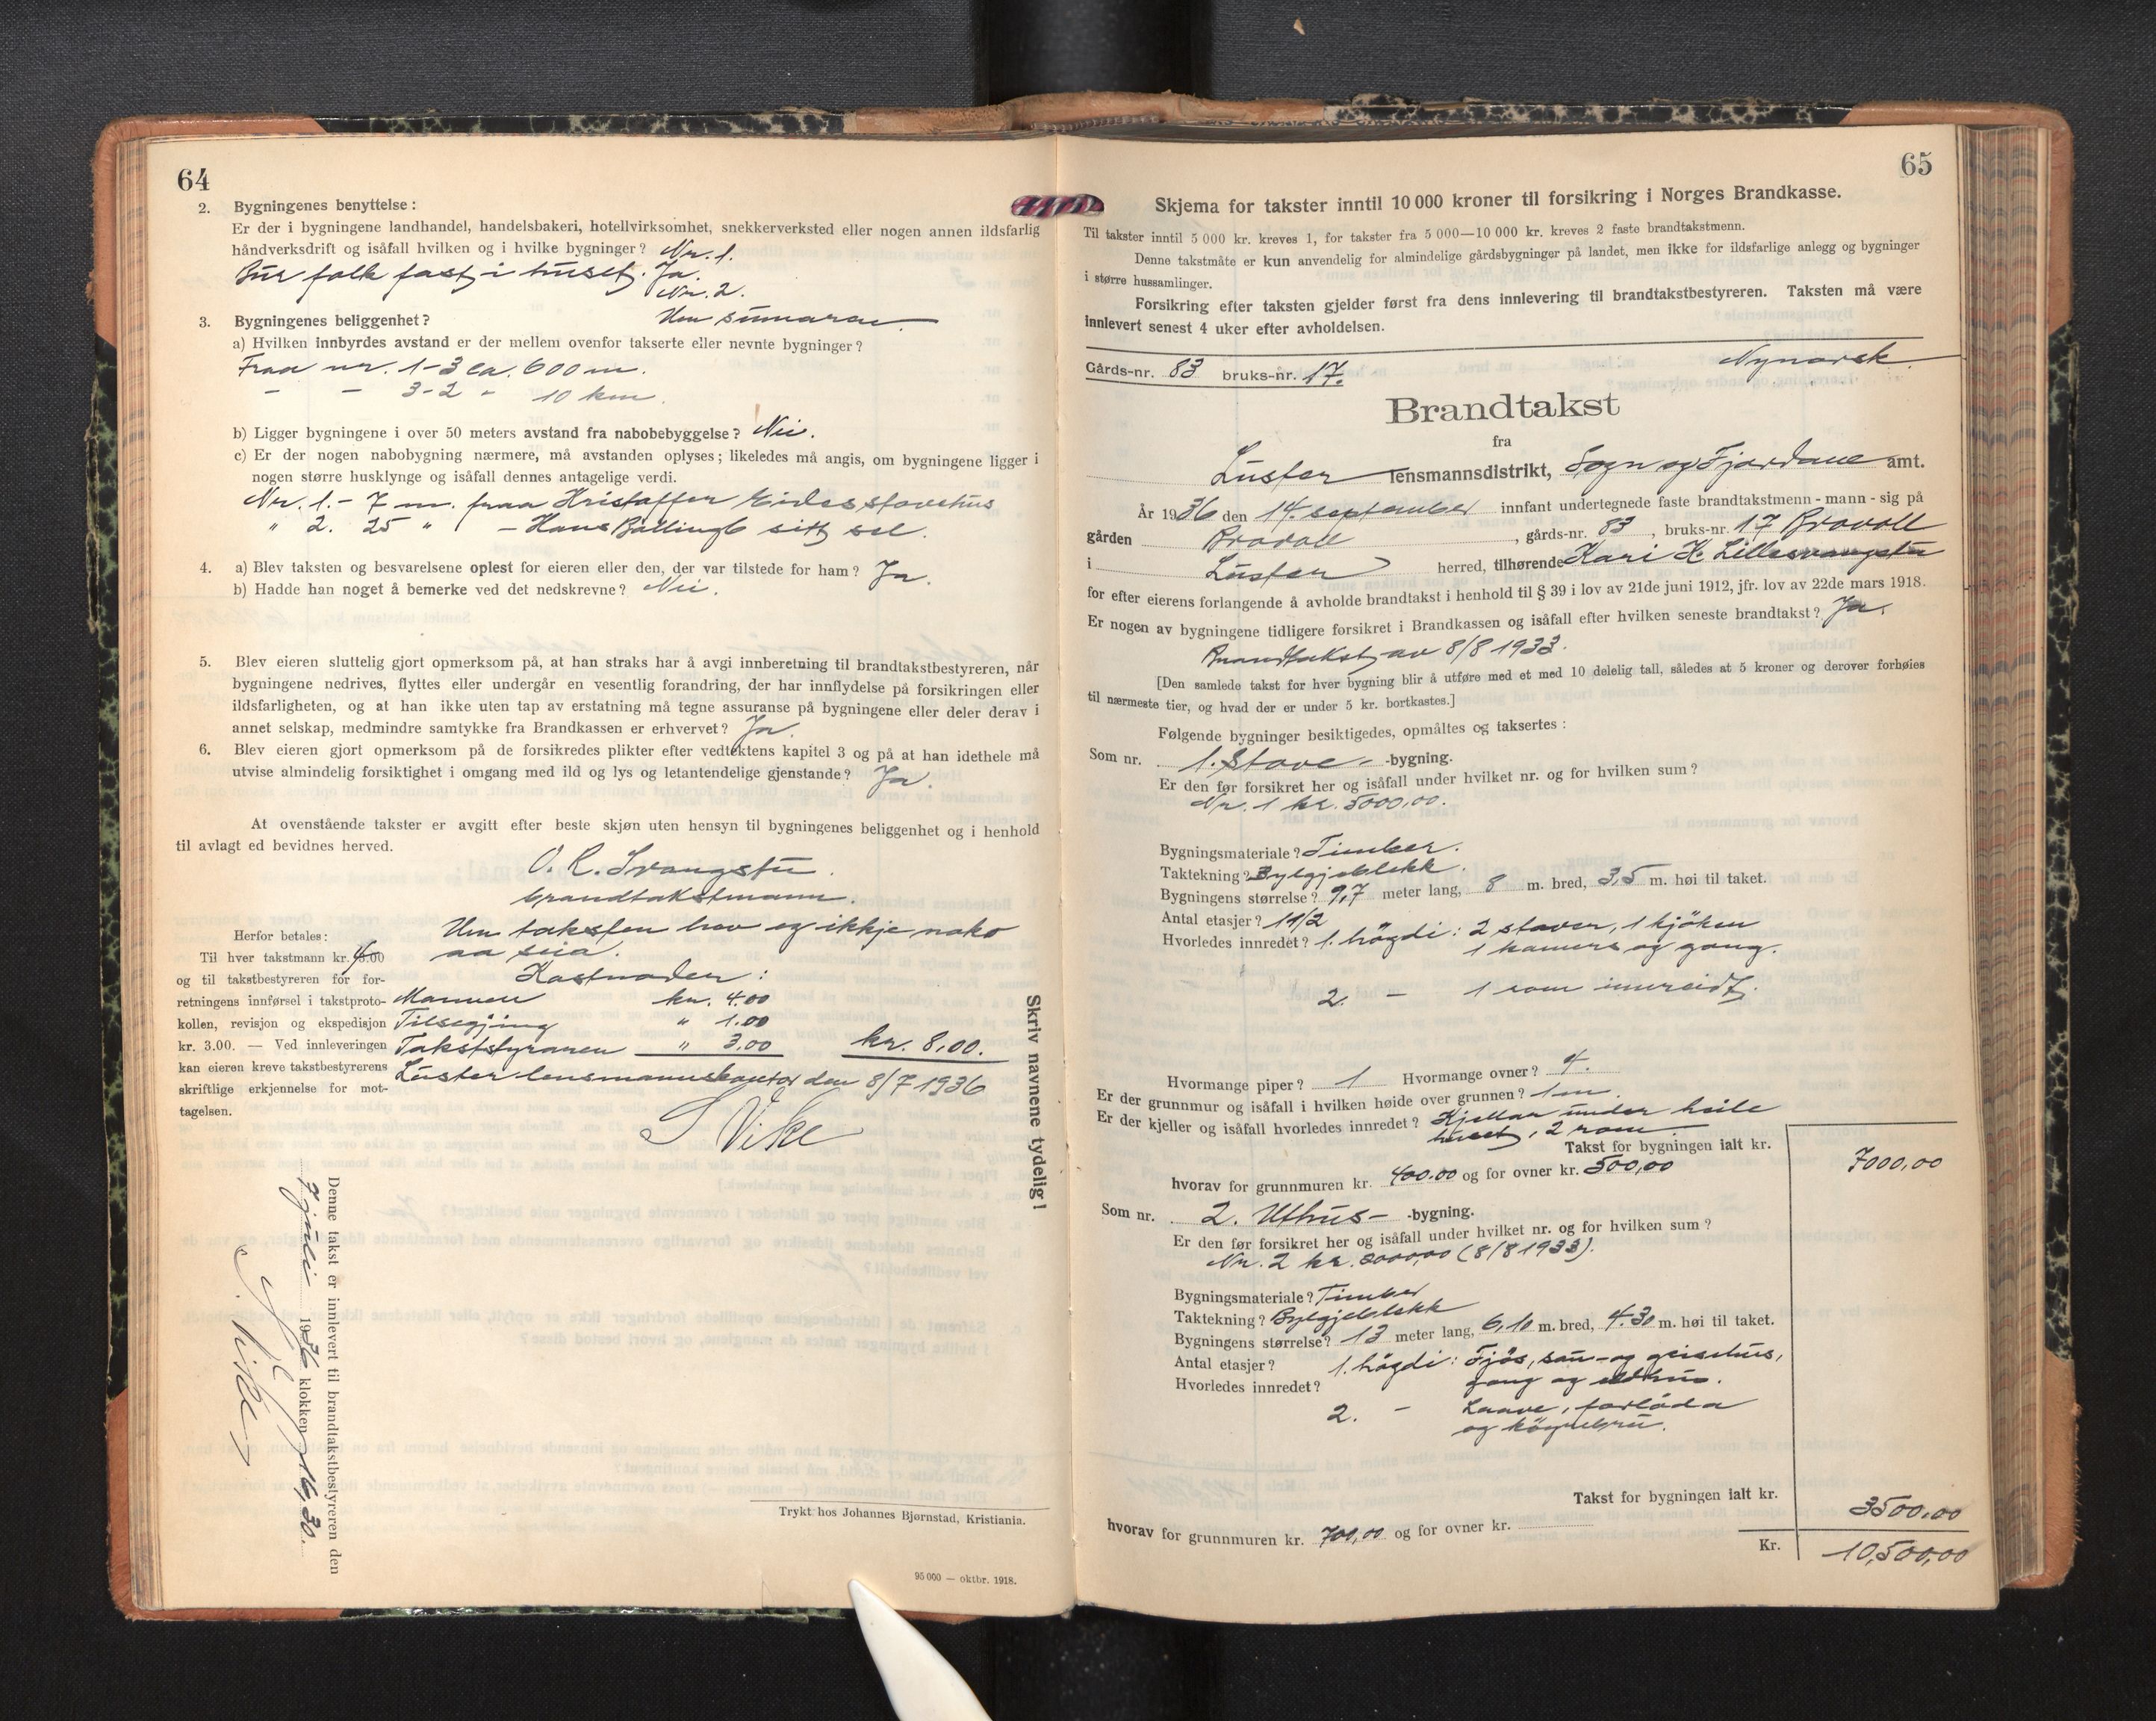 64
2. Bygningenes benyttelse:
Er der i bygningene landhandel, handelsbakeri, hotellvirksomhet, snekkerverksted eller nogen annen ildsfarlig
håndverksdrift og isåfall hvilken og i hvilke bygninger? Nr. 1.
Bur folk fast i huset. Ja.
Nr. 2.
3. Bygningenes beliggenhet? Um sumaren
a) Hvilken innbyrdes avstand er der mellem ovenfor takserte eller nevnte bygninger?
Fraa nr. 1-3 ca. 600 m.
- - 3-2 - 10 km.
b) Ligger bygningene i over 50 meters avstand fra nabobebyggelse? Nei.
c) Er der nogen nabobygning nærmere, må avstanden oplyses; likeledes må angis, om bygningene ligger i
nogen større husklynge og isåfall dennes antagelige verdi.
Nr. 1. - 7 m. fraa Kristoffer Eides stovehus
" 2. 25 " - Hans sitt sel.
4. a) Blev taksten og besvarelsene oplest for eieren eller den, der var tilstede for ham? Ja.
b) Hadde han noget å bemerke ved det nedskrevne? Nei.
5. Blev eieren sluttelig gjort opmerksom på, at han straks har å avgi innberetning til brandtakstbestyreren, når
bygningene nedrives, flyttes eller undergår en vesentlig forandring, der har innflydelse på forsikringen eller
ildsfarligheten, og at han ikke uten tap av erstatning må tegne assuranse på bygningene eller deler derav i
annet selskap, medmindre samtykke fra Brandkassen er erhvervet? Ja.
6. Blev eieren gjort opmerksom på de forsikredes plikter efter vedtektens kapitel 3 og på at han idethele må
utvise almindelig forsiktighet i omgang med ild og lys og letantendelige gjenstande? Ja.
At ovenstående takster er avgitt efter beste skjøn uten hensyn til bygningenes beliggenhet og i henhold
til avlagt ed bevidnes herved.
O. R. Svangstu.
brandtakstmann.
Um taksten hev eg ikkje noko
aa seia.
Kostnader:
Mannen kr. 4.00
Tilsegjing " 1.00
Takststyraren " 3.00 kr. 8.00.
Luster lensmannskontor den 8/7 1936
S Vike
Herfor betales:
Til hver takstmann kr. 4.00
og til takstbestyreren for for-
retningens innførsel i takstproto-
kollen, revisjon og ekspedisjon
kr. 3.00. — Ved innleveringen
kan eieren kreve takstbestyrerens
skriftlige erkjennelse for mot-
tagelsen.
Skriv navnene tydelig!
Denne takst er innlevert til brandtakstbestyreren den
7 juli 1936 klokken 16,30.
S. Vike
Trykt hos Johannes Bjørnstad, Kristiania.
95 000 — oktbr. 1918.
65
Skjema for takster inntil 10 000 kroner til forsikring i Norges Brandkasse.
Til takster inntil 5 000 kr. kreves 1, for takster fra 5 000—10 000 kr. kreves 2 faste brandtakstmenn.
Denne takstmåte er kun anvendelig for almindelige gårdsbygninger på landet, men ikke for ildsfarlige anlegg og bygninger
i større hussamlinger.
Forsikring efter taksten gjelder først fra dens innlevering til brandtakstbestyreren. Taksten må være
innlevert senest 4 uker efter avholdelsen.
Gårds-nr. 83 bruks-nr. 17. Nynorsk.
Brandtakst
fra
Luster lensmannsdistrikt, Sogn og Fjordane amt.
År 1936 den 14. september innfant undertegnede faste brandtakstmenn - mann - sig på
gården Bravoll, gårds-nr. 83, bruks-nr. 17 Bravoll
i Luster herred, tilhørende Kari K. Lillesvangstu
for efter eierens forlangende å avholde brandtakst i henhold til § 39 i lov av 21de juni 1912, jfr. lov av 22de mars 1918.
Er nogen av bygningene tidligere forsikret i Brandkassen og isåfall efter hvilken seneste brandtakst? Ja.
Brandtakst av 8/8 1933.
[Den samlede takst for hver bygning blir å utføre med et med 10 delelig tall, således at 5 kroner og derover forhøies
til nærmeste tier, og hvad der er under 5 kr. bortkastes.]
Følgende bygninger besiktigedes, opmåltes og taksertes:
Som nr. 1. Stove- -bygning.
Er den før forsikret her og isåfall under hvilket nr. og for hvilken sum?
Nr. 1 kr. 5000,00.
Bygningsmateriale? Timber.
Taktekning? Bylgjeblekk.
Bygningens størrelse? 9,7 meter lang, 8 m. bred, 3,5 m. høi til taket.
Antal etasjer? 1 1/2
Hvorledes innredet? 1. högdi: 2 stover, 1 kjöken
1 kamers og gang.
2. - 1 rom innreidt.
Hvormange piper? 1 Hvormange ovner? 4.
Er der grunnmur og isåfall i hvilken høide over grunnen? 1 m.
Er der kjeller og isåfall hvorledes innredet? Kjellar under heile
huset, 2 rom.
Takst for bygningen ialt kr. 7000,00
hvorav for grunnmuren kr. 400.00 og for ovner kr. 500,00
Som nr. 2. Uthus- -bygning.
Er den før forsikret her og isåfall under hvilket nr. og for hvilken sum?
Nr. 2 kr. (8/8 1933).
Bygningsmateriale? Timber
Taktekning? Bylgjeblekk
Bygningens størrelse? 13 meter lang, 6,10 m. bred, 4.30 m. høi til taket.
Antal etasjer? 1. högdi: Fjös, sau- og geisehus,
Hvorledes innredet? gang og eldhus.
2. - Laave, forlöda
og köyrebru.
Takst for bygningen ialt kr. 3500.00
hvorav for grunnmuren kr. 700,00 og for ovner kr.
Kr. 10,500,00